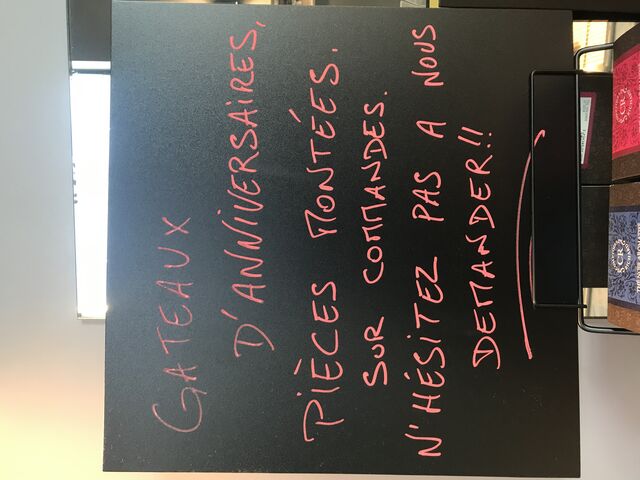 GATEAUX
D'ANNIVERSAIRES,
PIÈCES MONTÉES.
SUR COMMANDES.
N'HÉSITEZ PAS A NOUS
DEMANDER!!
CR
CR